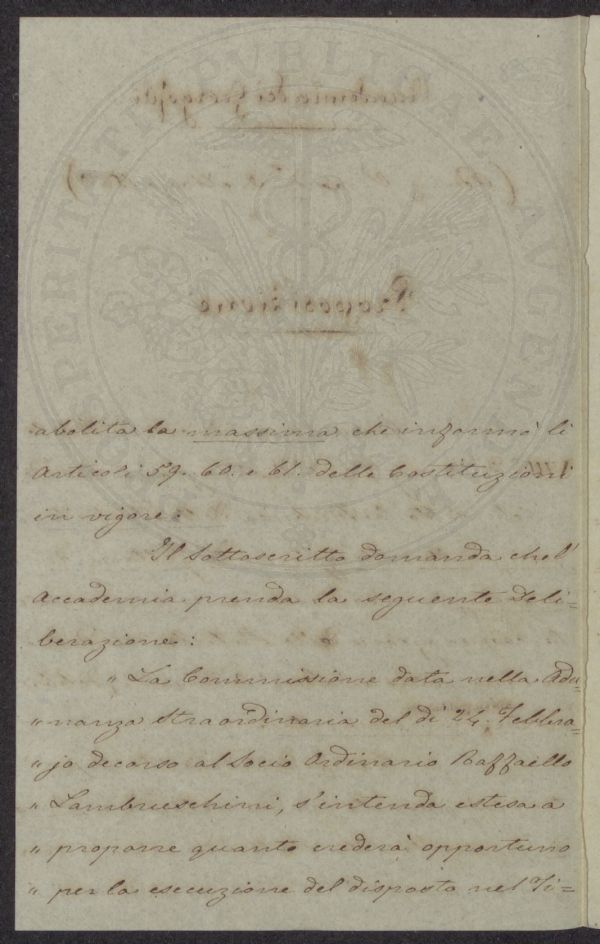 abolita la massima che informò li
articoli 59. 60. e 61. delle Costituzioni
in vigore.
Il Sottoscritto domanda che l'
Accademia prenda la seguente Deli=
berazione:
" La Commissione data nella Adu=
" nanza Straordinaria del dì 24. Febbra=
" jo decorso al Socio Ordinario Raffaello
" Lambruschini, s'intenda estesa a
" proporre quanto crederà opportuno
" per la esecuzione del disposto nel Ti=